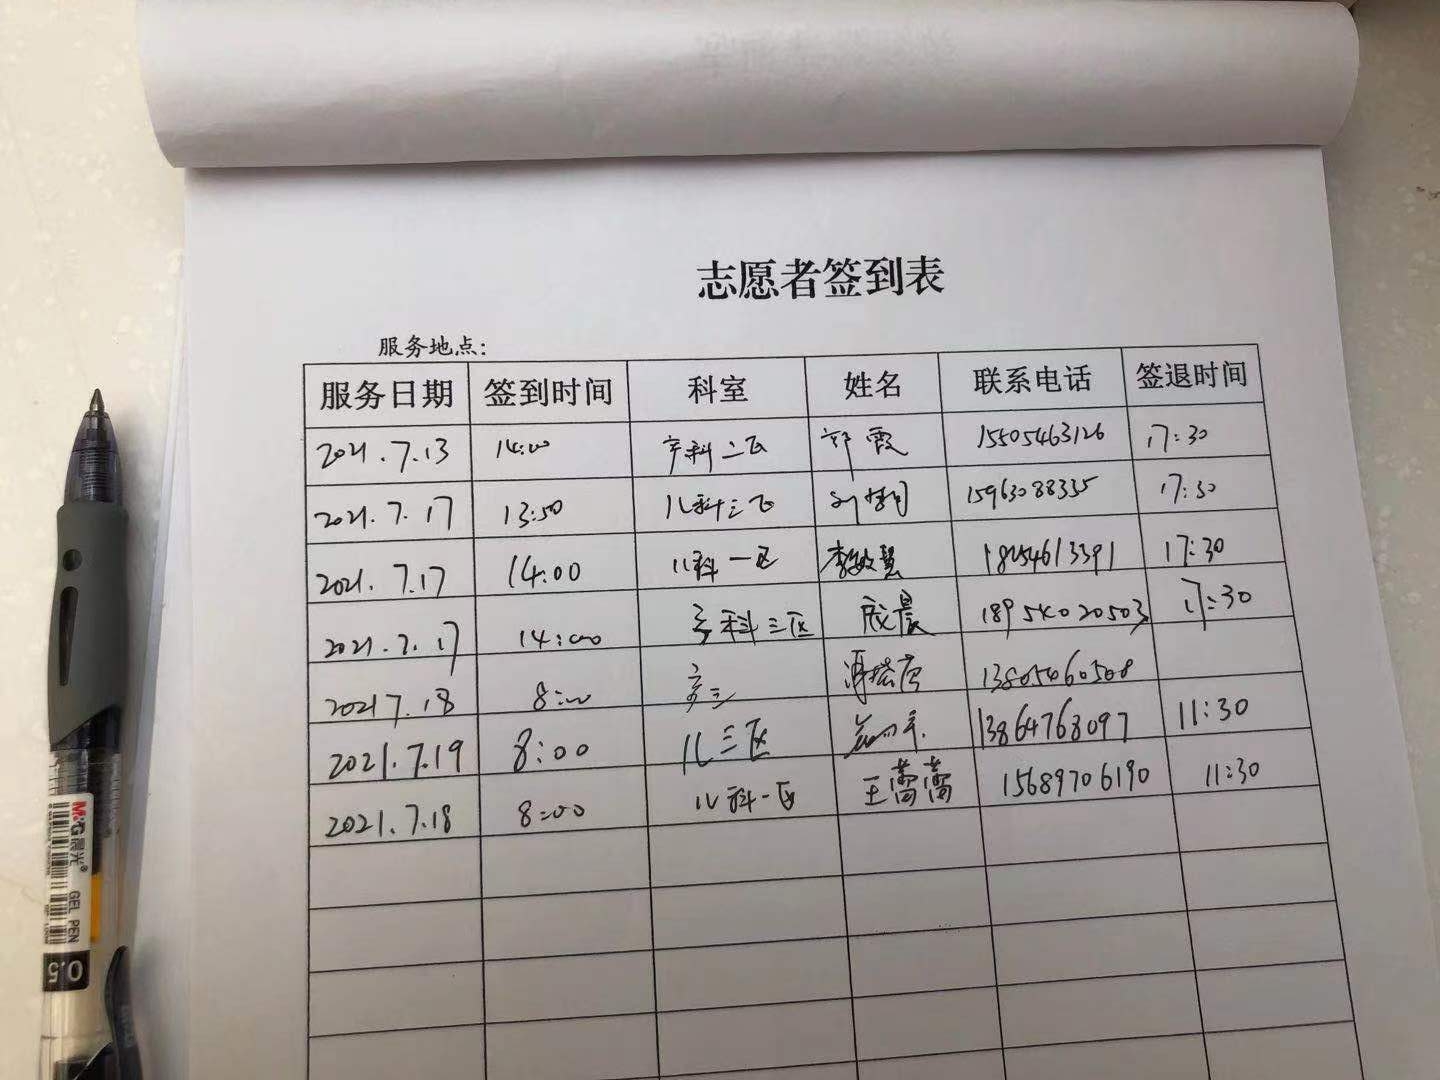 志愿者签到表
服务地点:
服务日期 签到时间 科室 姓名 联系电话 签退时间
2021.7.13 14:00 产科二区 郭霞 15505463126 17:30
2021.7.17 13:50 儿科三区 15963088335 17:30
2021.7.17 14:00 儿科一区 李敏慧 18254613391 17:30
2021.7.17 14:00 产科三区 成晨 18954020503 17:30
2021 7.18 8:00 产三 13805460508
2021.7.19 8:00 儿三区 13864768097 11:30
2021.7.18 8:00 儿科一区 王蕾蕾 15689706190 11:30
M&G 晨光®
GEL PEN
0.5